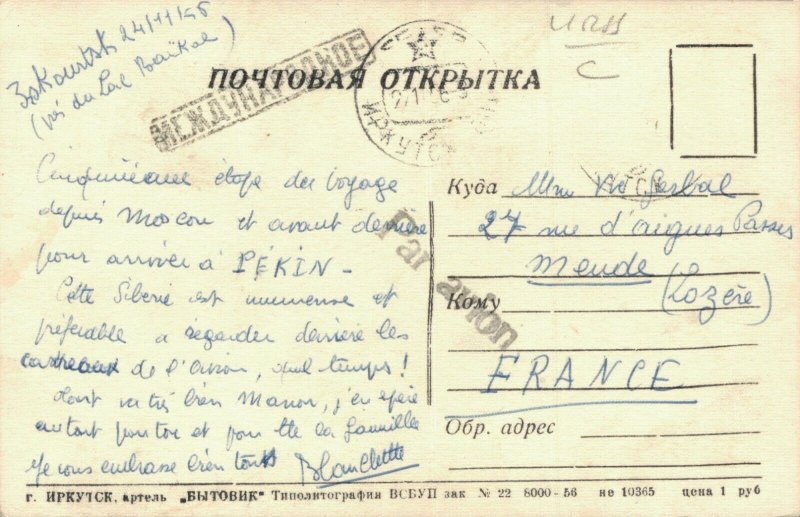 24/11/56
(près du Lac Baïkal)
МЕЖДУНАРОДНОЕ
ИРКУТСК
ПОЧТОВАЯ ОТКРЫТКА
C
Cinquième étape du voyage
depuis Moscou et avant dernière
pour arriver à PÉKIN -
Cette Sibérie est immense et
préférable à regarder derrière les
carreaux de l'avion, quel temps !
va très bien Manon, j'en espère
autant pour toi et pour tte la famille
Je vous embrasse bien tous
Blanchette
Par avion
Куда Mme Vve
27 rue d'aigues Passes
Mende
Кому (Lozère)
FRANCE
Обр. адрес
г. ИРКУТСК, артель „БЫТОВИК" Типолитография ВСБУП зак № 22 8000-56 не 10365 цена 1 руб